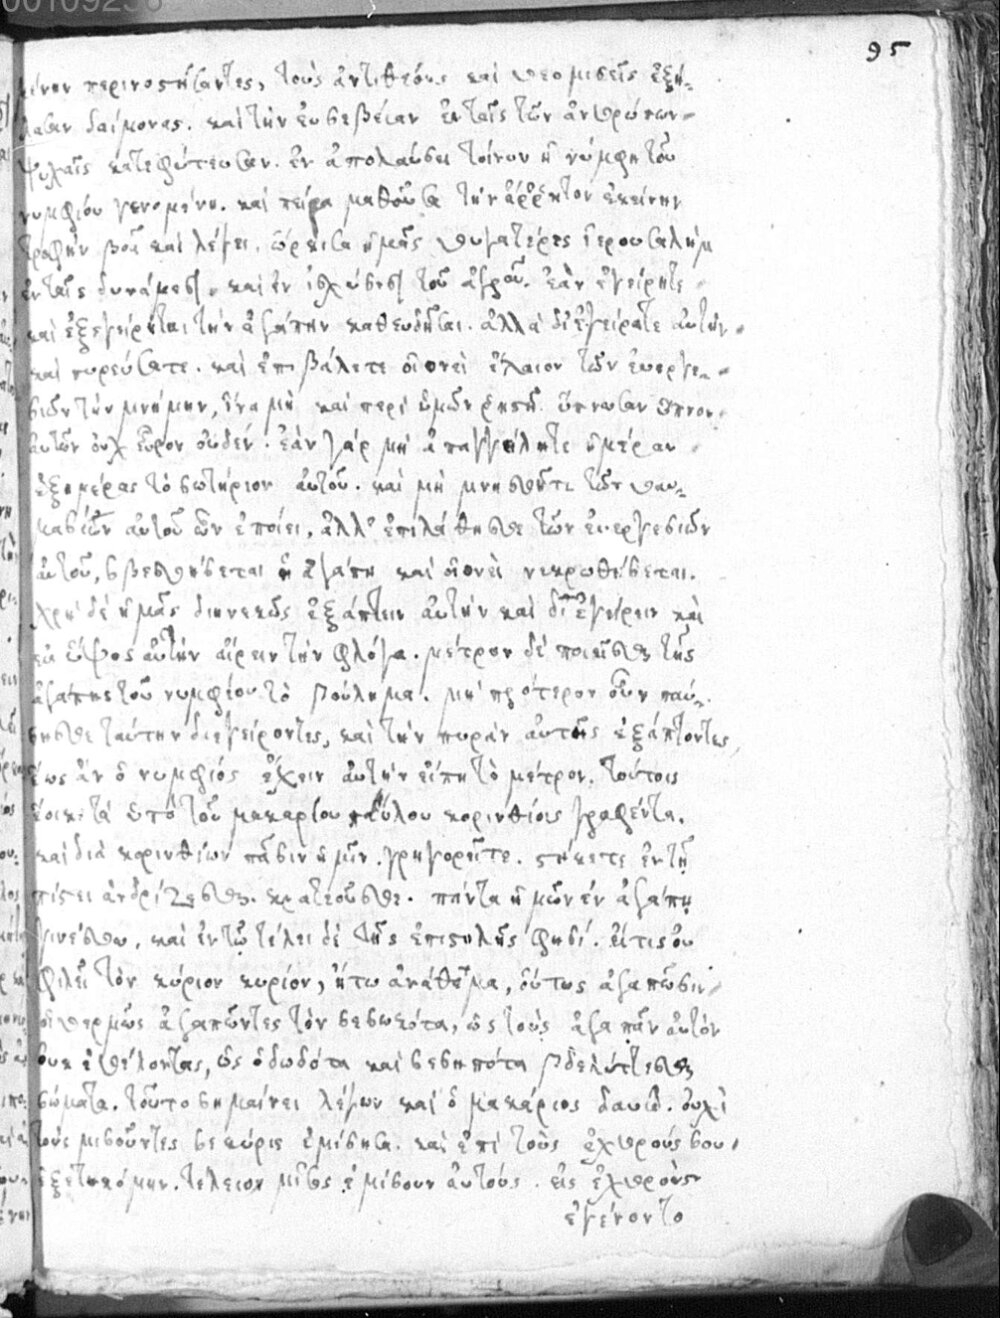 00109256
95
περινοστήσαντες, τοὺς ἀντιθέους καὶ θεομισεῖς ἐξή-
λασαν δαίμονας. καὶ τὴν εὐσέβειαν ἐν ταῖς τῶν ἀνθρώπων
ψυχαῖς κατεφύτευσαν. ἐν ἀπολαύσει τοίνυν ἡ νύμφη τοῦ
νυμφίου γενομένη. καὶ πείρα μαθοῦσα τὴν ἄρρηκτον ἐκείνην
τροφὴν βοᾶ καὶ λέγει. ὥρκισα ὑμᾶς θυγατέρες ἱερουσαλὴμ
ἐν ταῖς δυνάμεσι. καὶ ἐν ἰσχύσεσι τοῦ ἀγροῦ. ἐὰν ἐγείρητε
καὶ ἐξεγείρηται τὴν ἀγάπην καθευδῆσαι. ἀλλὰ διεγείρατε αὐτὴν
καὶ πυρεύσατε. καὶ ἐπιβάλετε οἱονεὶ ἔλαιον τῶν εὐεργε-
σιῶν τὴν μνήμην, ἵνα μὴ καὶ περὶ ὑμῶν ῥηθῆ. ὕπνωσαν ὕπνον
αὐτῶν οὐχ εὗρον οὐδέν. ἐὰν γάρ μὴ ἀπαγγείλητε ἡμέραν
ἐξ ἡμέρας τὸ σωτήριον αὐτοῦ. καὶ μὴ μνησθῆτε τῶν θαυ-
μασίων αὐτοῦ ὧν ἐποίει, ἀλλ' ἐπιλάθησθε τῶν εὐεργεσιῶν
αὐτοῦ, σβεσθήσεται ἡ ἀγάπη καὶ οἱονεὶ νεκρωθήσεται.
χρὴ δὲ ἡμᾶς διηνεκῶς ἐξάπτειν αὐτὴν καὶ διεγείρειν καὶ
εἰς ὕψος αὐτὴν αἴρειν τὴν φλόγα. μέτρον δὲ ποιεῖσθαι τῆς
ἀγάπης τοῦ νυμφίου τὸ βούλημα. μὴ πρότερον οὖν παύ-
σησθε ταύτην διεγείροντες, καὶ τὴν πυρὰν αὐτῆς ἐξάπτοντες
ἕως ἂν ὁ νυμφίος ἔχειν αὐτὴν εἴπη τὸ μέτρον. τούτοις
ἔοικε τὰ ὑπὸ τοῦ μακαρίου παύλου κορινθίοις γραφέντα.
καὶ διὰ κορινθίων πᾶσιν ἡμῖν. γρηγορεῖτε. στήκετε ἐν τῆ
πίστει ἀνδρίζεσθε. κραταιοῦσθε. πάντα ἡμῶν ἐν ἀγάπη
γινέσθω, καὶ ἐν τῶ τέλει δὲ τῆς ἐπιστολῆς φησί. εἴ τις οὐ
φιλεῖ τὸν κύριον κυρίον, ἤτω ἀνάθεμα, οὕτως ἀγαπῶσιν
οἱ θερμῶς ἀγαπῶντες τὸν σεσωκότα, ὡς τοὺς ἀγαπᾶν αὐτὸν
οὐκ ἐθέλοντας, ὡς ὀδωδότα καὶ σεσηπότα βδελύττεσθαι
σώματα. τοῦτο σημαίνει λέγων καὶ ὁ μακάριος δαυίδ. οὐχὶ
τοὺς μισοῦντάς σε κύριε ἐμίσησα. καὶ ἐπὶ τοὺς ἐχθρούς σου
ἐξετηκόμην. τέλειον μῖσος ἐμίσουν αὐτούς. εἰς ἐχθροὺς
ἐγένοντο